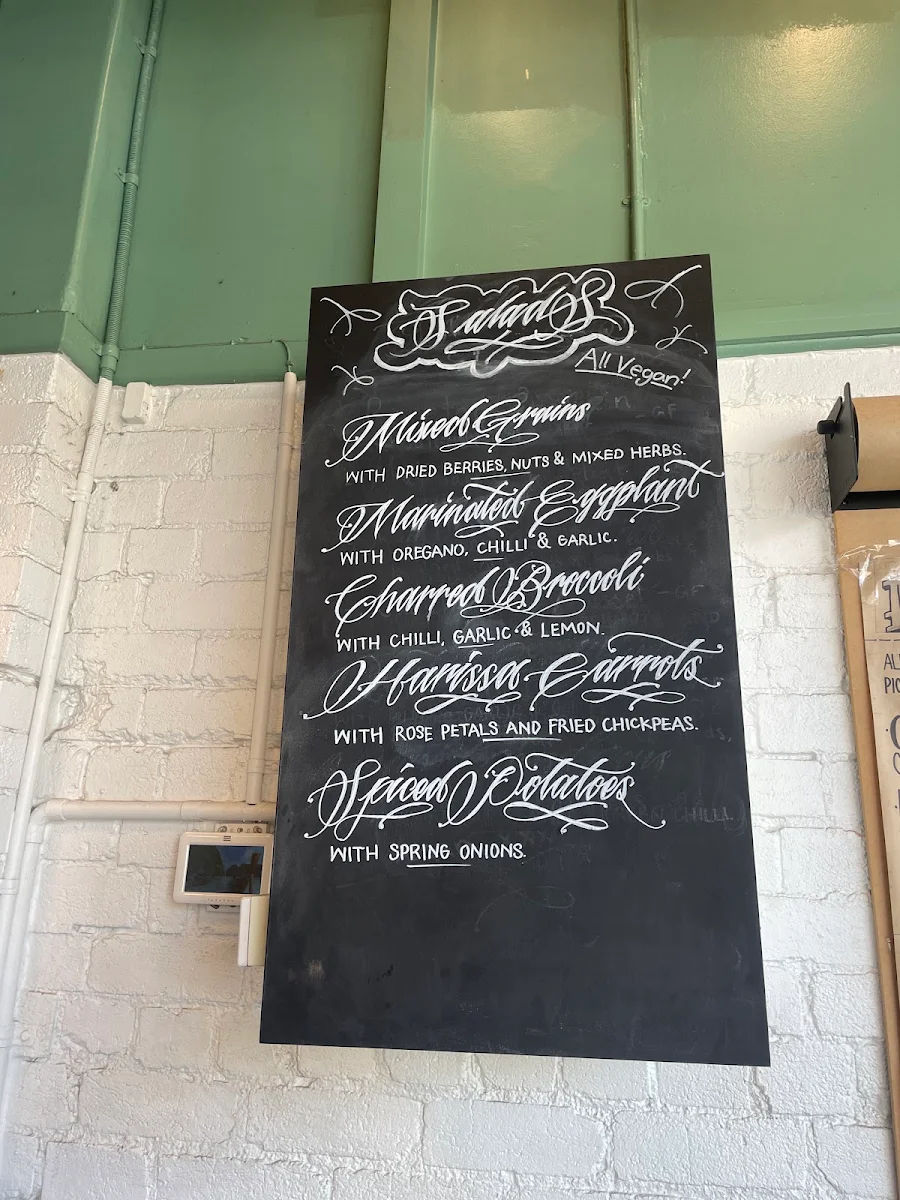 Salads
All Vegan!
Mixed Grains
WITH DRIED BERRIES, NUTS & MIXED HERBS.
Marinated Eggplant
WITH OREGANO, CHILLI & GARLIC.
Charred Broccoli
WITH CHILLI, GARLIC & LEMON.
Harissa Carrots
WITH ROSE PETALS AND FRIED CHICKPEAS.
Spiced Potatoes
WITH SPRING ONIONS.